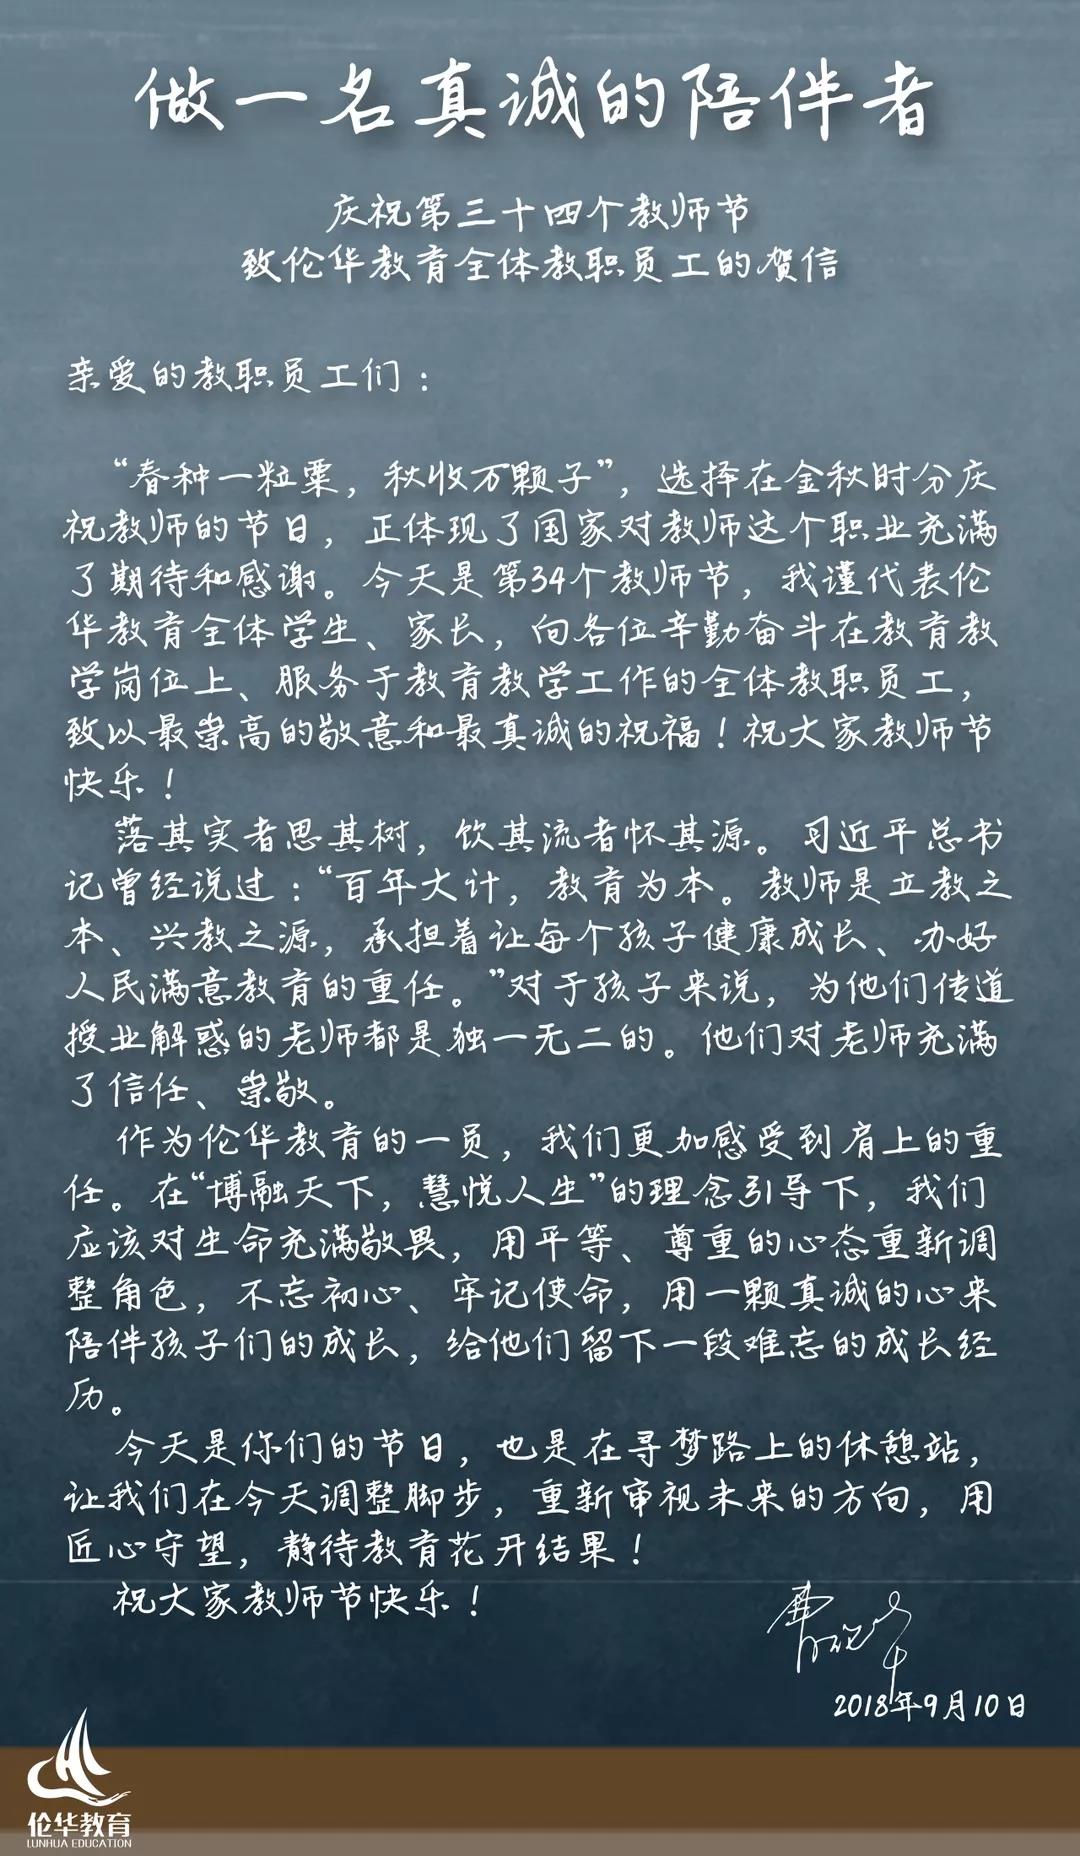 做一名真诚的陪伴者
庆祝第三十四个教师节
致伦华教育全体教职员工的贺信
亲爱的教职员工们：
“春种一粒粟，秋收万颗子”，选择在金秋时分庆
祝教师的节日，正体现了国家对教师这个职业充满
了期待和感谢。今天是第34个教师节，我谨代表伦
华教育全体学生、家长，向各位辛勤奋斗在教育教
学岗位上、服务于教育教学工作的全体教职员工，
致以最崇高的敬意和最真诚的祝福！祝大家教师节
快乐！
落其实者思其树，饮其流者怀其源。习近平总书
记曾经说过：“百年大计，教育为本。教师是立教之
本、兴教之源，承担着让每个孩子健康成长、办好
人民满意教育的重任。”对于孩子来说，为他们传道
授业解惑的老师都是独一无二的。他们对老师充满
了信任、崇敬。
作为伦华教育的一员，我们更加感受到肩上的重
任。在“博融天下，慧悦人生”的理念引导下，我们
应该对生命充满敬畏，用平等、尊重的心态重新调
整角色，不忘初心、牢记使命，用一颗真诚的心来
陪伴孩子们的成长，给他们留下一段难忘的成长经
历。
今天是你们的节日，也是在寻梦路上的休憩站，
让我们在今天调整脚步，重新审视未来的方向，用
匠心守望，静待教育花开结果！
祝大家教师节快乐！
2018年9月10日
伦华教育
LUNHUA EDUCATION